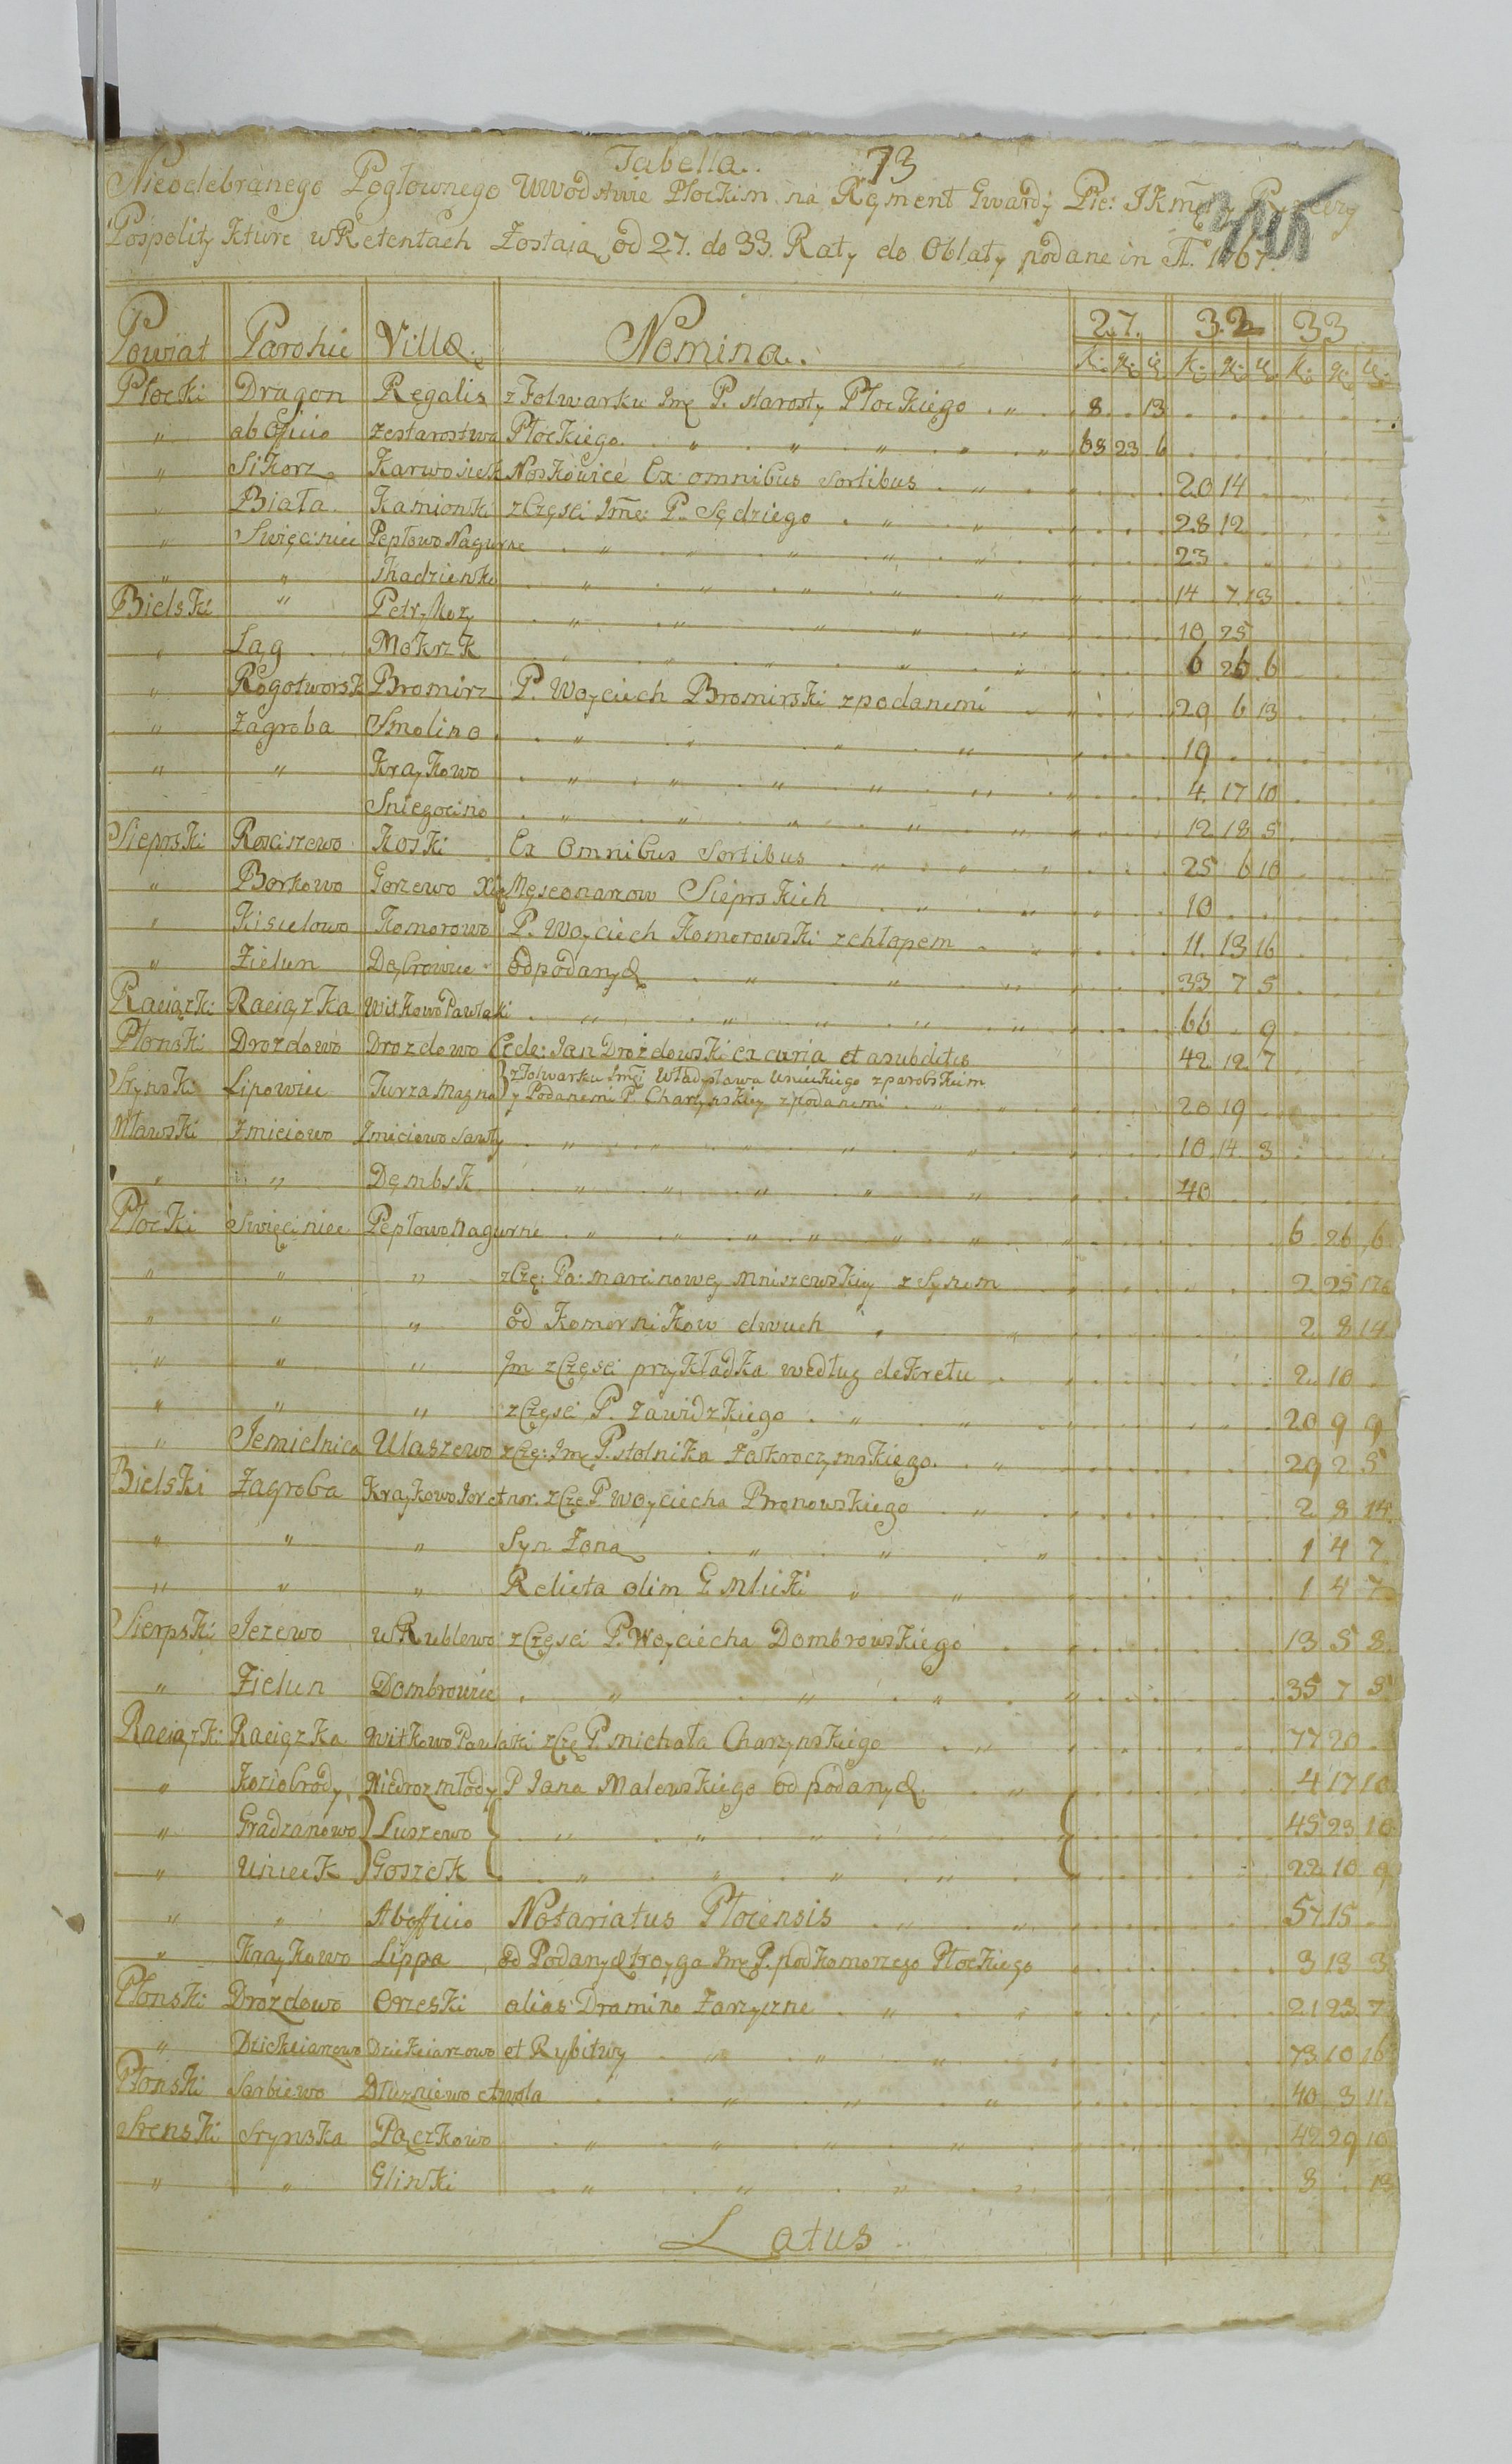 Tabella. 73
Nieodebranego Pogłownego w Wodstwie Płockim na Regment Gwardy Pie: JKmę y
Pospolity Kture w Retentach Zostaią od 27. do 33. Raty do Oblaty podane in A. 1767.
Powiat Parohie Villæ. Nomina. 27. 32 33
Płocki Dragon Regalis z Folwarku Jmę P. starosty Płockiego 8 . 13
" ab Officio ze starostwa Płockiego 68 23 6
" Sikorz Karwosieck Noskowice Ex omnibus sortibus 20 14
" Biała Kamionki z Częsci Jme: P. Sędziego 28 12
" Swięciniec Pepłowo Nagurne 23
" " Thadzienki 14 7 13
Bielski " Petrykozy 10 25
" Łąg Mokrzk 6 26 6
" Rogotworsk Bromirz P. Woyciech Bromirski z podanemi 29 6 13
" Zagroba Smolino 19
" " Kraykowo 4 17 10
Sniegocino 12 18 5
Sieprski Rosciszewo Koski Ex Omnibus Sortibus 25 6 10
" Borkowo Gorzewo Xię Męseonarow Sieprskich 10
" Kisielowo Komorowo P. Woyciech Komorowski z chłopem 11 13 16
" Zielun Dąbrowice Od podanych 33 7 5
Raciązki Raciązka Witkowo Pawlaki 66 . 9
Płonski Drozdowo Drozdowo Cede: Jan Drozdowski ex curia et a subditis 42 12 7
Srynski Lipowiec Turza Mazna z Folwarku Jmęi Władysława Unieckiego z parobskiem
y Podanemi P. Charzynskiey z podanemi 20 19
Mławski Zmiciowo Zmiciowo Sawły 10 14 3
" " Dęmbsk 40
Płocki Swięciniec Pepłowo Nagurne 6 26 6
" " " z Czę: Pa: Marcinowey Mniszewskiey z Synem 2 25 17
" " " od Komornikow dwuch 2 8 14
" " " Jm z Częsci przykładka według dekretu 2 10
" " " z Częsci P. Zawidzkiego 20 9 9
" Jemielnica Ulaszewo z Czę: Jmę P. stolnika Zakroczymskiego 29 2 5
Bielski Zagroba Kraykowo z Czę P. Woyciecha Bronowskiego 2 8 14
" " " Syn Zona 1 4 7
" " " Relicta olim G. Mlicki 1 4 7
Sierpski Jezewo w Rublewo z Częsci P. Woyciecha Dombrowskiego 13 5 8
" Zielun Dombrowice 35 7 5
Raciązki Raciązka Witkowo Pawlaki z Czę P. Michała Charzynskiego 77 20
" Koziobrody Niedroz młody P Jana Malewskiego od podanych 4 17 10
" Gradzanowo Luszewo 45 23 10
" Unieck Goszck 22 10 9
" " Ab officio Notariatus Plocensis 57 15
" Kraykowo Lippa od Podanych troyga Jmę P. podkomorzego Płockiego 3 13 3
Płonski Drozdowo Orzeski alias Dramino Zarzyczne 21 23 7
" Dziekcianzewo Dziekciarzowo et Rybitwy 73 10 16
Płonski Sarbiewo Dłuzniewo et wola 40 3 11
Srenski Srynska Pączkowo 42 29 10
" " Glinki 8 . 13
Latus